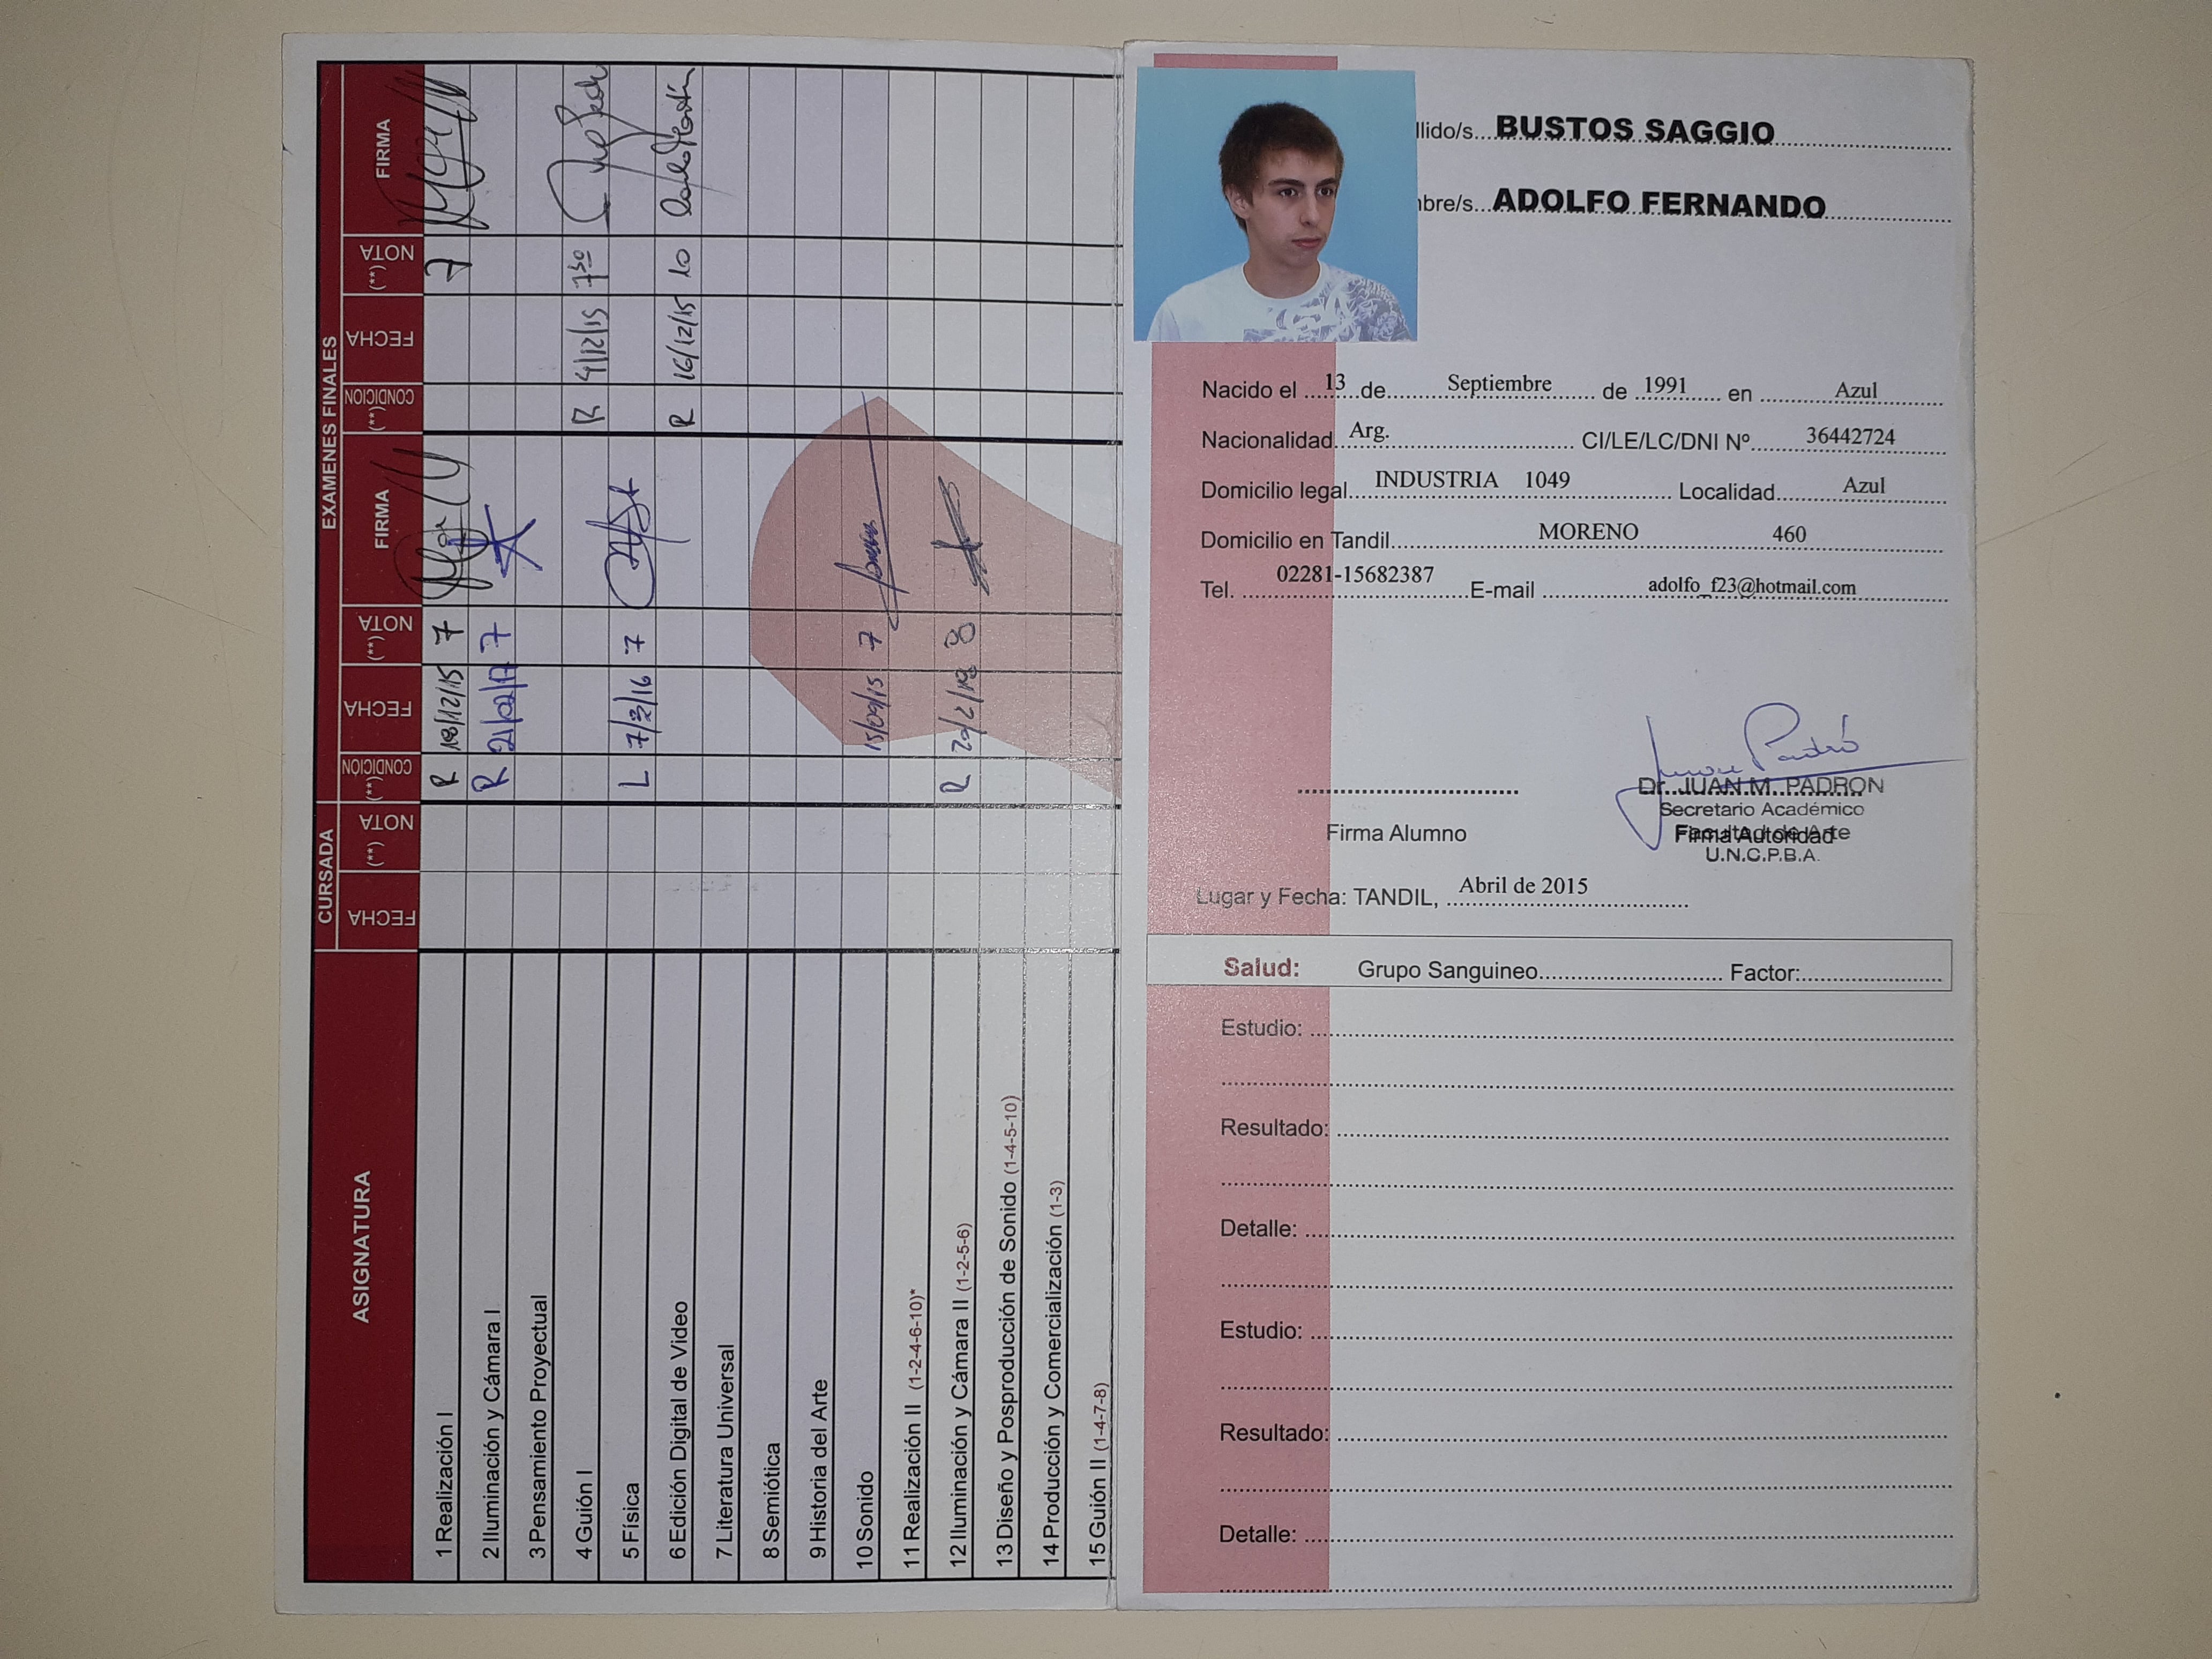 EXAMENES FINALES
CURSADA
ASIGNATURA FECHA NOTA (**) CONDICION (**) FECHA NOTA (**) FIRMA CONDICION (**) FECHA NOTA (**) FIRMA
1 Realización I R 18/12/15 7 7
2 Iluminación y Cámara I R 21/02/17 7
3 Pensamiento Proyectual
4 Guión I R 4/12/15 7 50
5 Física L 7/3/16 7
6 Edición Digital de Video R 16/12/15 10
7 Literatura Universal
8 Semiótica
9 Historia del Arte
10 Sonido 15/09/15 7
11 Realización II (1-2-4-6-10)*
12 Iluminación y Cámara II (1-2-5-6) R 8
13 Diseño y Posproducción de Sonido (1-4-5-10)
14 Producción y Comercialización (1-3)
15 Guión II (1-4-7-8)
llido/s... BUSTOS SAGGIO
bre/s... ADOLFO FERNANDO
Nacido el 13 de Septiembre de 1991 en Azul
Nacionalidad Arg. CI/LE/LC/DNI Nº 36442724
Domicilio legal INDUSTRIA 1049 Localidad Azul
Domicilio en Tandil MORENO 460
Tel. 02281-15682387 E-mail adolfo_f23@hotmail.com
Dr. JUAN M. PADRON
Secretario Académico
Facultad de Arte
U.N.C.P.B.A.
Firma Alumno Firma Autoridad
Lugar y Fecha: TANDIL, Abril de 2015
Salud: Grupo Sanguineo Factor:
Estudio:
Resultado:
Detalle:
Estudio:
Resultado:
Detalle: